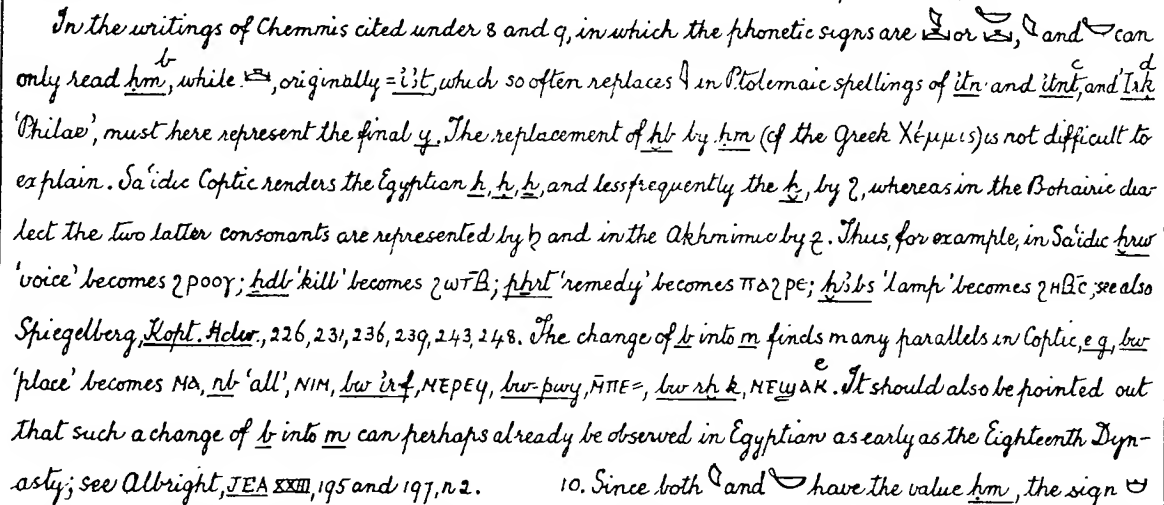 In the writings of Chemmis cited under 8 and 9, in which the phonetic signs are or , and can
b c d
only read ḥm, while , originally = i͗ꜣt, which so often replaces in Ptolemaic spellings of i͗tn and i͗tnt, and I͗rḳ
'Philae', must here represent the final y. The replacement of ḫb by ḥm (cf the Greek Χέμμις) is not difficult to
explain. Sa'idic Coptic renders the Egyptian h, ḥ, ẖ, and less frequently the ḫ, by ϩ, whereas in the Bohairic dia-
lect the two latter consonants are represented by ϧ and in the Akhmimic by ⳉ. Thus, for example, in Sa'idic ḫrw
'voice' becomes ϩⲣⲟⲟⲩ; ẖdb 'kill' becomes ϩⲱⲧⲃ̄; pẖrt 'remedy' becomes ⲡⲁϩⲣⲉ; ḫꜣbs 'lamp' becomes ϩⲏⲃ̄ⲥ̄, see also
Spiegelberg, Kopt. Hdw., 226, 231, 236, 239, 243, 248. The change of b into m finds many parallels in Coptic, e g, bw
e
'place' becomes ⲙⲁ, nb 'all', ⲛⲓⲙ, bw i͗rf, ⲙⲉⲣⲉϥ, bw-pwy, ⲙ̄ⲡⲉ=, bw rḫ k, ⲙⲉϣⲁⲕ. It should also be pointed out
that such a change of b into m can perhaps already be observed in Egyptian as early as the Eighteenth Dyn-
asty; see Albright, JEA XXIII, 195 and 197, n 2. 10. Since both and have the value ḥm, the sign